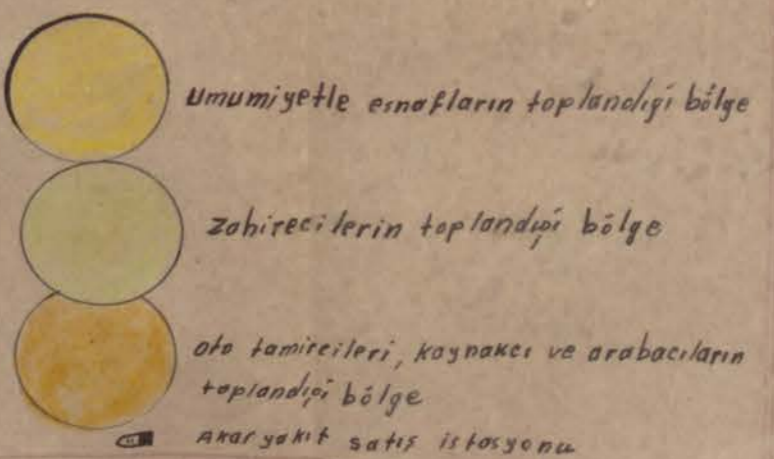 Umumiyetle esnafların toplandığı bölge
Zahirecilerin toplandığı bölge
Oto tamircileri, kaynakcı ve arabacıların
toplandığı bölge
Akaryakıt satış istasyonu